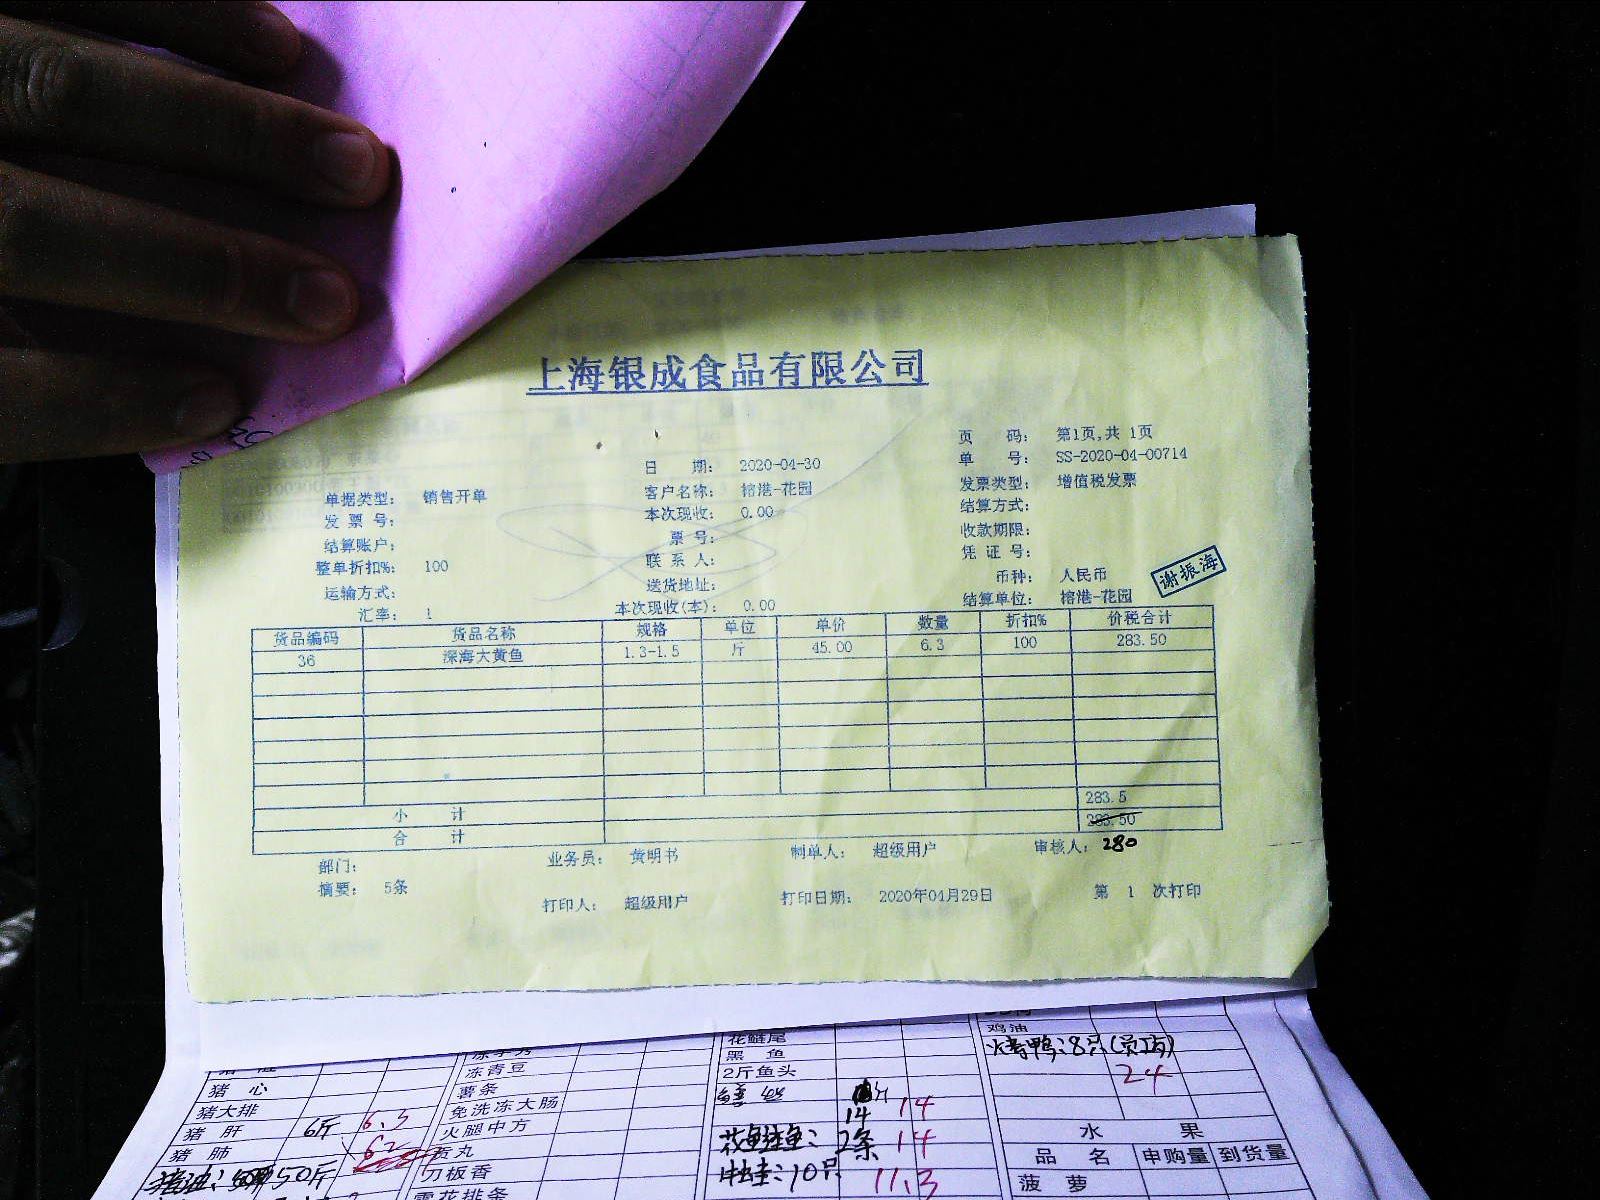 上海银成食品有限公司
页 码: 第1页,共 1页
日 期: 2020-04-30
单 号: SS-2020-04-00714
单据类型: 销售开单
客户名称: 榕港-花园
发票类型: 增值税发票
发 票 号:
本次现收: 0.00
结算方式:
结算账户:
票号:
收款期限:
整单折扣%: 100
联 系 人:
凭 证 号:
运输方式:
送货地址:
币种: 人民币
谢振海
汇率: 1
本次现收(本): 0.00
结算单位: 榕港-花园
货品编码 货品名称 规格 单位 单价 数量 折扣% 价税合计
36 深海大黄鱼 1.3-1.5 斤 45.00 6.3 100 283.50
小 计 283.5
合 计 283.50
部门: 业务员: 黄明书 制单人: 超级用户 审核人: 280
摘要: 5条
打印人: 超级用户 打印日期: 2020年04月29日 第 1 次打印
猪 心
猪大排
猪 肝 6斤 6.3
猪 肺 62
50斤
冻青豆
薯条
免洗冻大肠
火腿中方
贡丸
刀板香
雪花排条
花鲢尾
黑 鱼
2斤鱼头
14 14
2条 14
牛蛙:10只 11.3
鸡油
烤鸭:8只(员工)
24
水 果
品 名 申购量 到货量
菠 萝